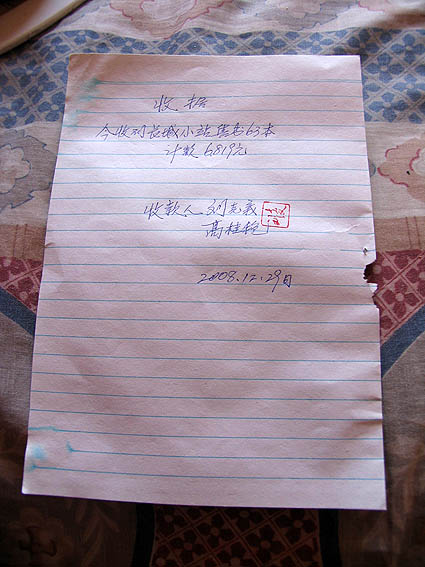 收据
今收到长城小站售书63本
计款6819元
收款人 刘克義
高桂
2008.12.29日